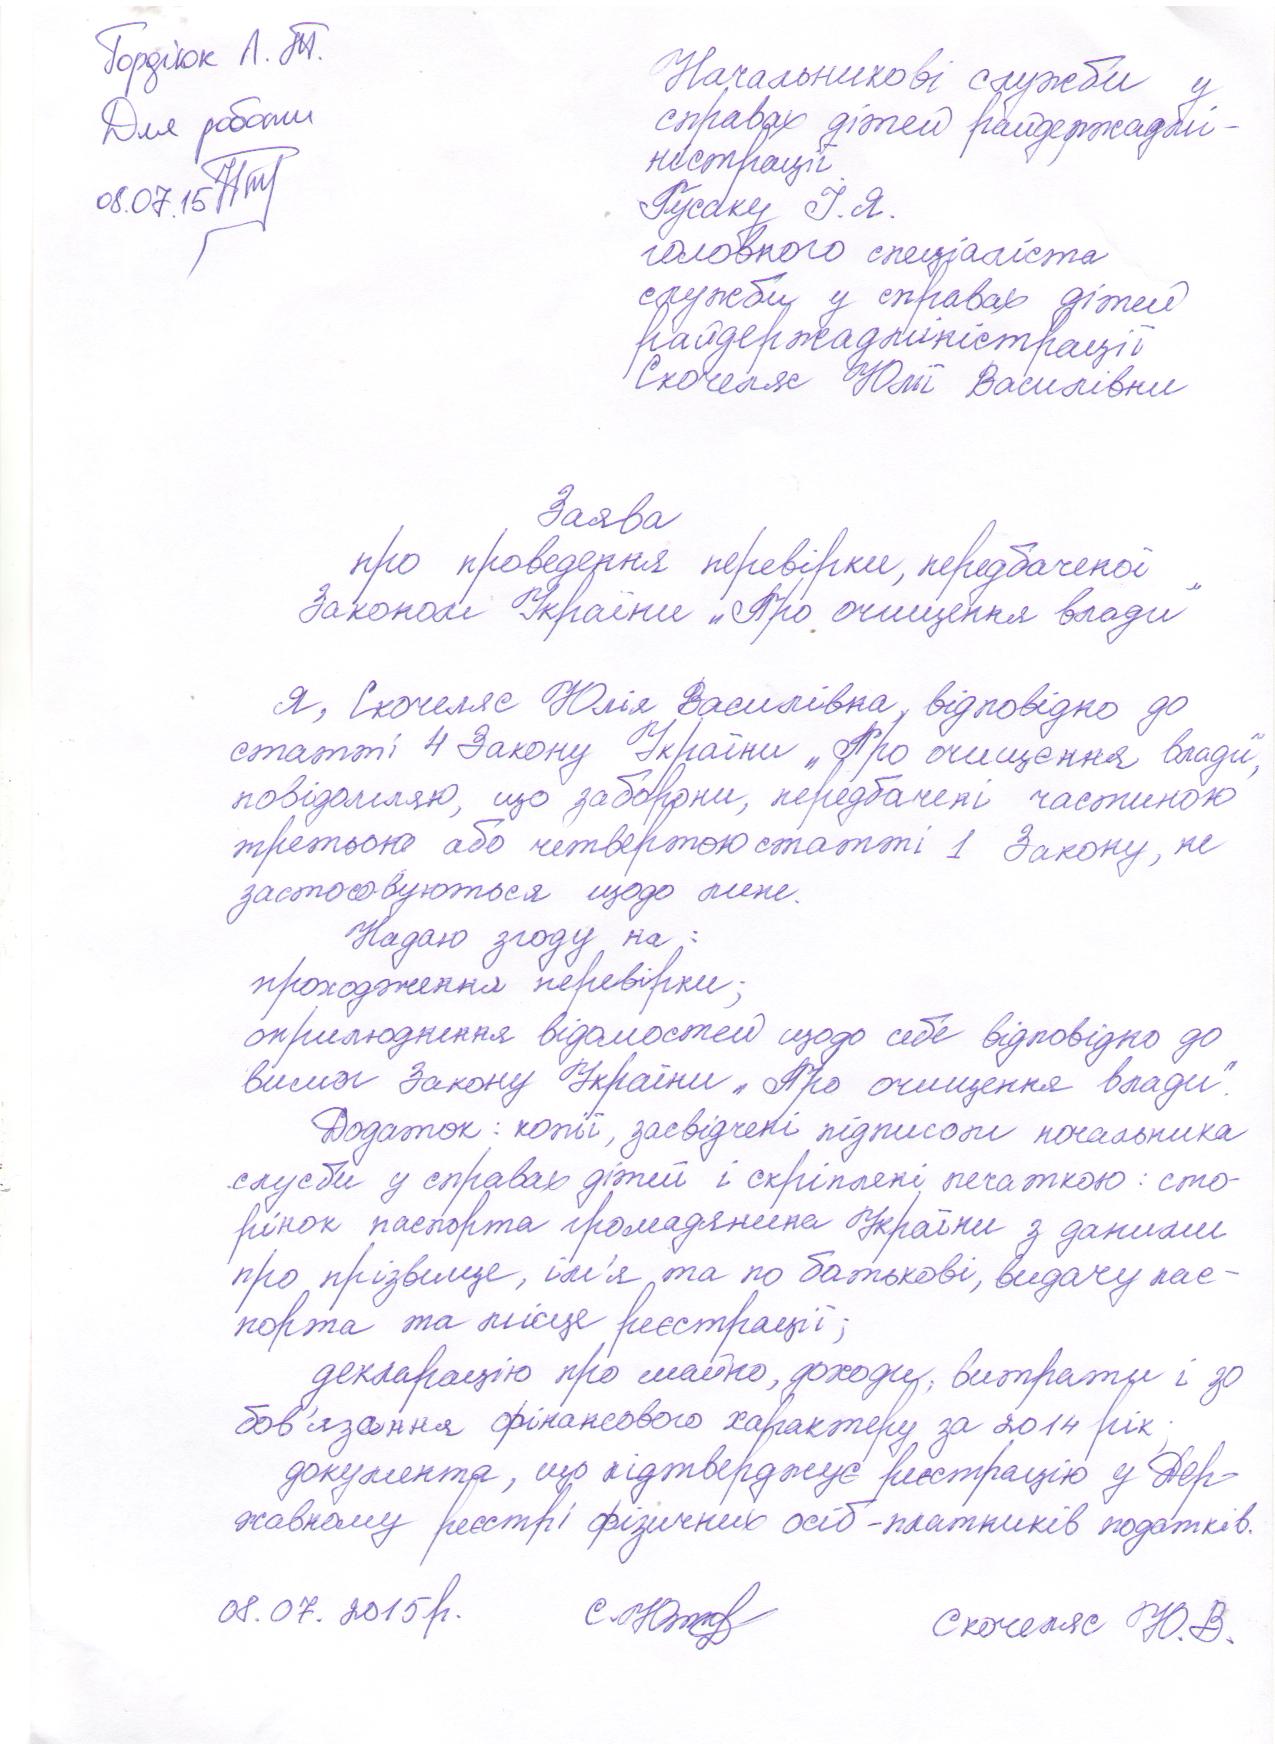 Гордіюк Л. П.
Для роботи
08.07.15
Начальникові служби у
справах дітей райдержадмі-
ністрації
Гусаку І. Я.
головного спеціаліста
служби у справах дітей
райдержадміністрації
Скочеляс Юлії Василівни
Заява
про проведення перевірки, передбаченої
Законом України „Про очищення влади"
Я, Скочеляс Юлія Василівна, відповідно до
статті 4 Закону України „Про очищення влади",
повідомляю, що заборони, передбачені частиною
третьою або четвертою статті 1 Закону, не
застосовуються щодо мене.
Надаю згоду на:
проходження перевірки;
оприлюднення відомостей щодо себе відповідно до
вимог Закону України „Про очищення влади".
Додаток: копії, засвідчені підписом начальника
служби у справах дітей і скріплені печаткою: сто-
рінок паспорта громадянина України з даними
про прізвище, ім'я та по батькові, видачу пас-
порта та місце реєстрації;
декларацію про майно, доходи, витрати і зо
бов'язання фінансового характеру за 2014 рік;
документа, що підтверджує реєстрацію у Дер-
жавному реєстрі фізичних осіб-платників податків.
08.07.2015р. Скочеляс Ю.В.